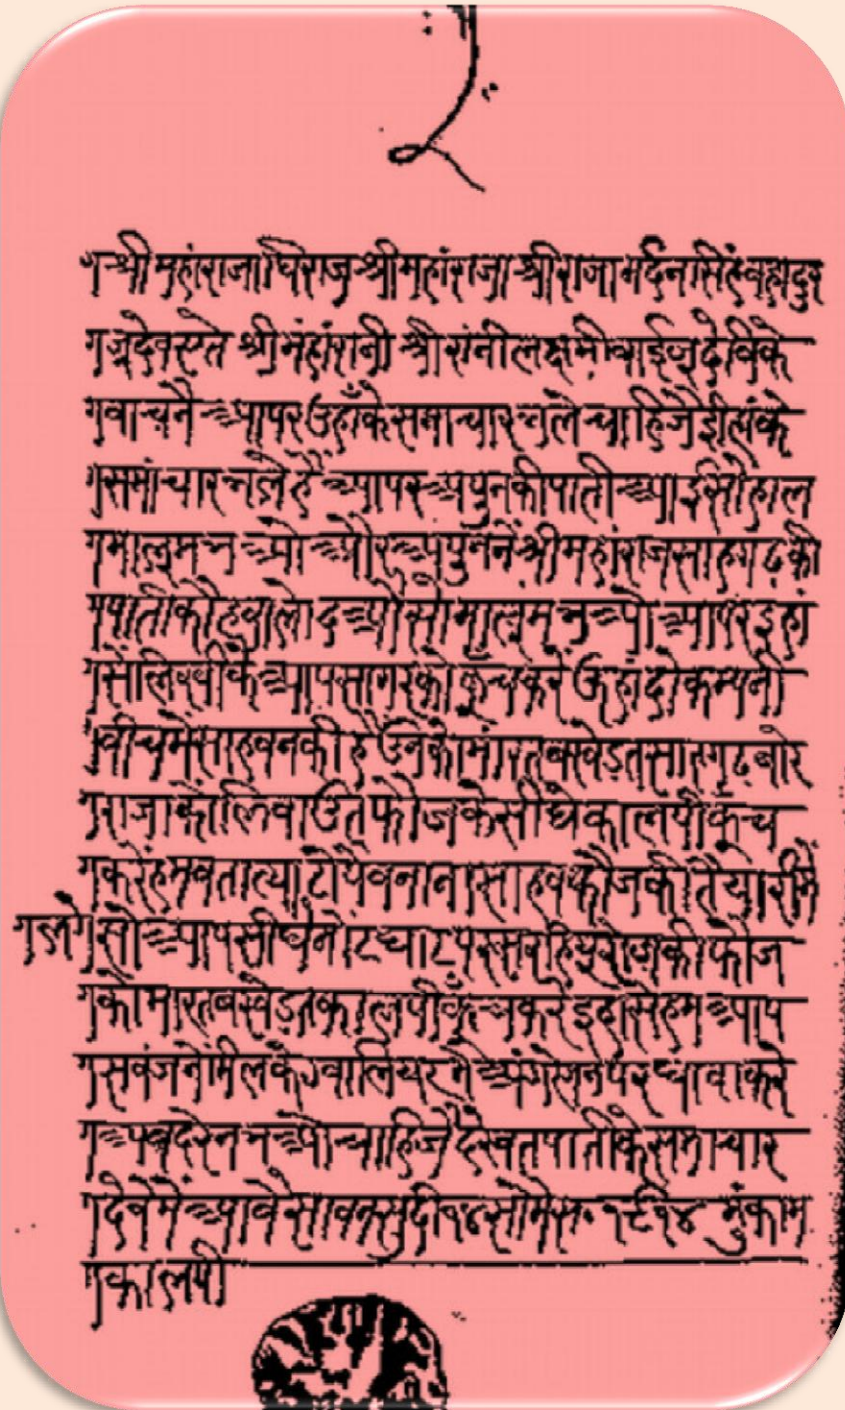 श्री महांराजाधिराज श्री महांराजा श्री राजा मर्दनसिंह वहादुर
जू देव एते श्री मंहांरानी श्री रांनी लक्षमी वाई जू देवि के
वाचनै आपर उहाँ के समाचार भले चाहिजै ईहां के
समांचार भले हैं आपर अपुन की पाती आई सो हाल
मालूम भओ और अपुन नें श्री महांराज साहगढ़ को
पाती कौ हवालो दओ सो मालूम भओ आपर इहां
सें लिखी कै आप सागर को कूँच करें ऊहां दो कम्पनी
वीच में साहवन की है उनको मारत खेड़त साहगढ़ वारे
राजा कों लिवाउत फौज के सीधे कालपी कूँच
करें हम व तात्या टोपे व नाना साहव फौज की तैयारी मैं
लगे सो आप सीघे नोट घाट पर सर हियू रोज की फौज
को मारत खेड़त कालपी कूँच करे इहां से हम आप
सवं जने मिलकें ग्वालियर मे अंग्रेजन पर धावा करें
अव देर न भओ चाहिजे देखत पाती के समाचार
देवे में आवे सावन सुदी १४ सोमे सं. १९१४ मुंकाम
कालपी